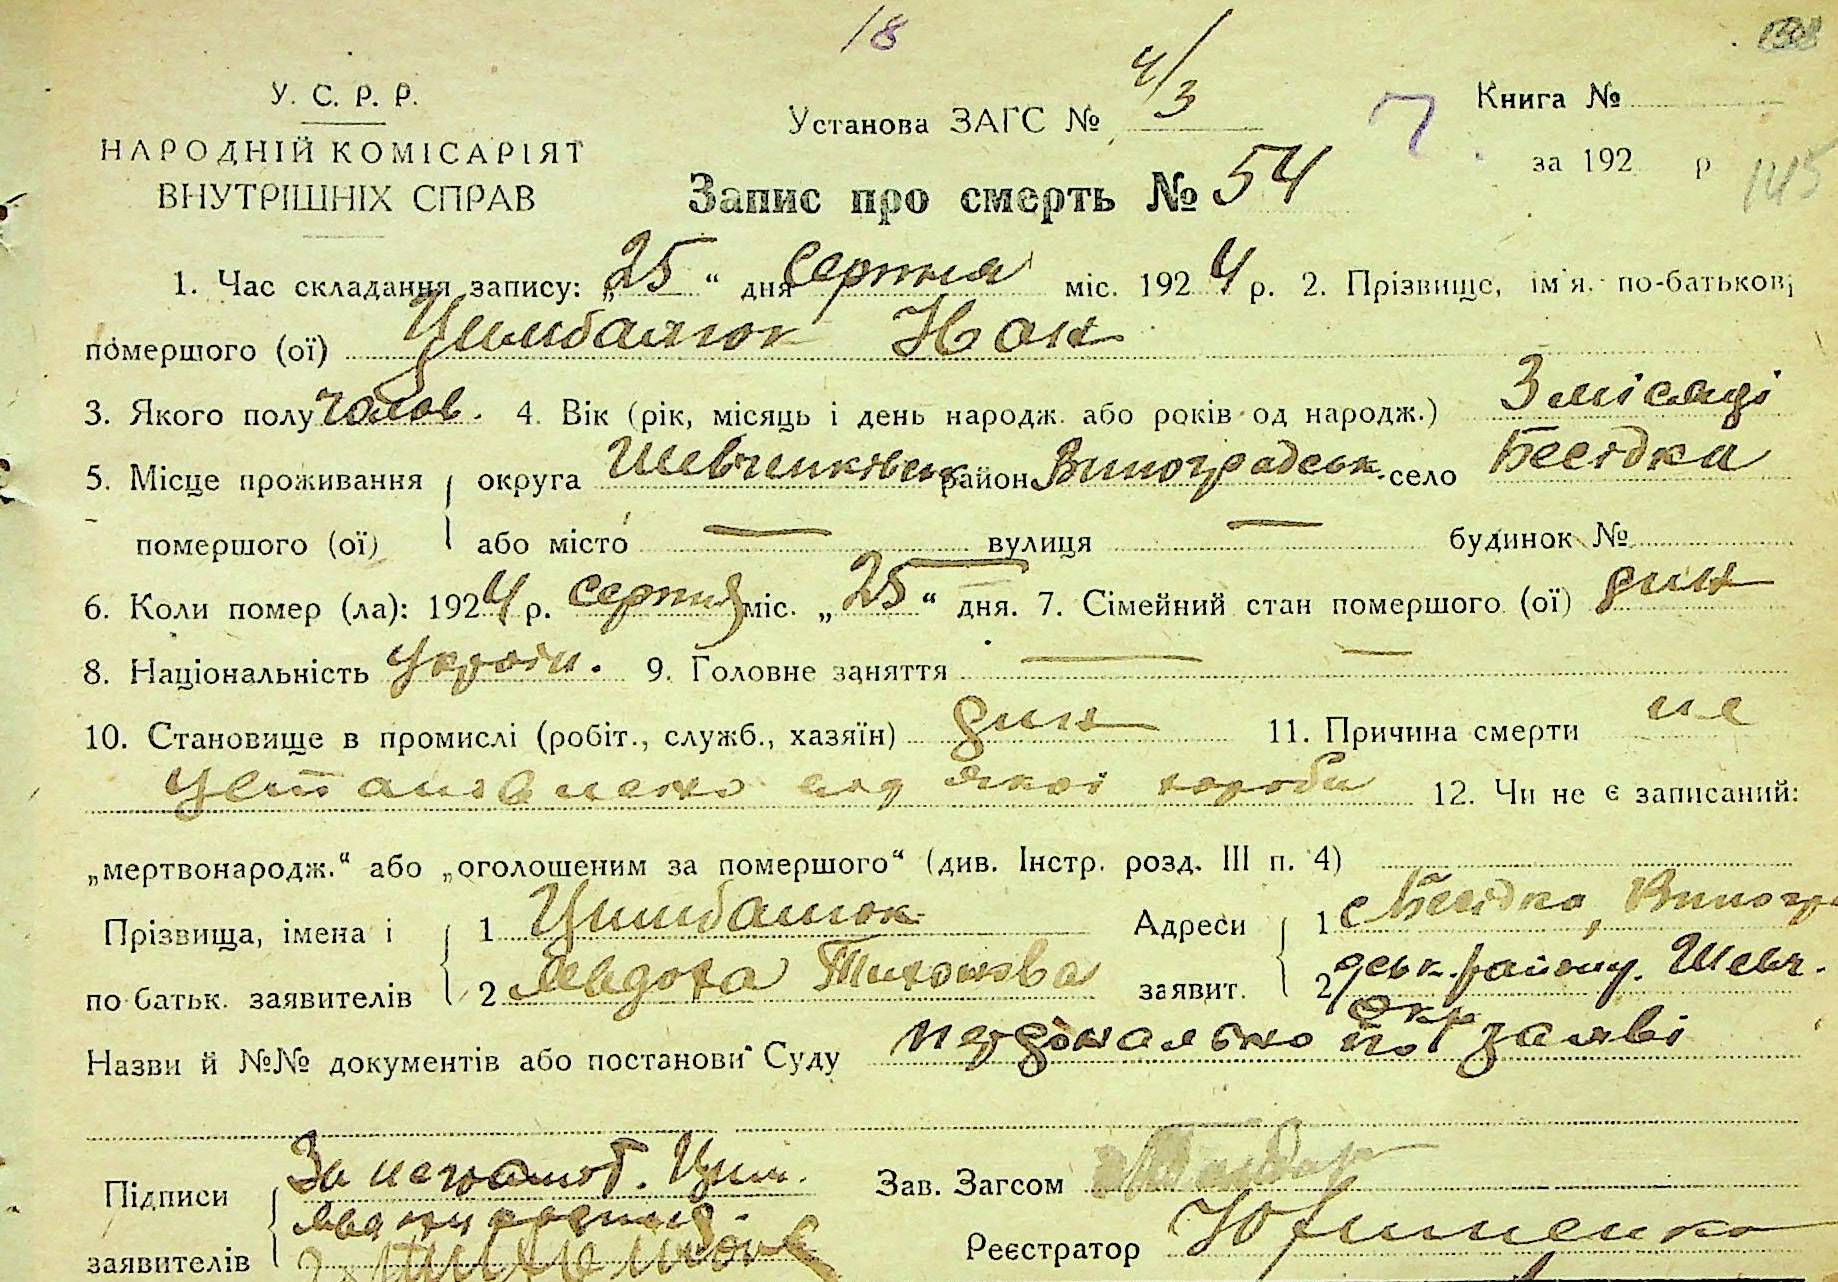 18
У. С. Р. Р.
НАРОДНІЙ КОМІСАРІЯТ
ВНУТРІШНІХ СПРАВ
Установа ЗАГС № 4/3
Книга №
за 192 р
145
Запис про смерть № 54
1. Час складання запису: „25“ дня серпня міс. 1924 р. 2. Прізвище, ім'я, по-батькові
помершого (ої) Цимбалюк
3. Якого полу чолов. 4. Вік (рік, місяць і день народж. або років од народж.) 3 місяці
5. Місце проживання округа Шевченківськ район Виноградськ. село Беседка
помершого (ої) або місто — вулиця — будинок №
6. Коли помер (ла): 1924 р. серпня міс. „25“ дня. 7. Сімейний стан помершого (ої) дит
8. Національність україн. 9. Головне заняття — —
10. Становище в промислі (робіт., служб., хазяїн) дит 11. Причина смерти не
установлено від якої хороби 12. Чи не є записаний:
„мертвонародж.“ або „оголошеним за помершого“ (див. Інстр. розд. III п. 4)
Прізвища, імена і 1 Цимбалюк Адреси 1 с Беседка, Виногра
по батьк. заявителів 2 Явдоха Тихонова заявит. 2 дськ. району. Шевч.
окр
Назви й №№ документів або постанови Суду по заяві
Підписи За неграмот. Цим. Зав. Загсом
заявителів Реєстратор